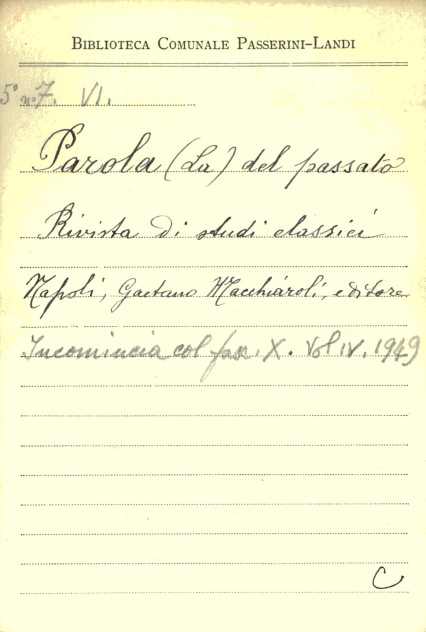 BIBLIOTECA COMUNALE PASSERINI-LANDI
5° n° 7. VI.
Parola (La) del passato
Rivista di studi classici
Napoli, Gaetano Macchiaroli, editore
Incomincia col fasc. X. Vol IV. 1949
C